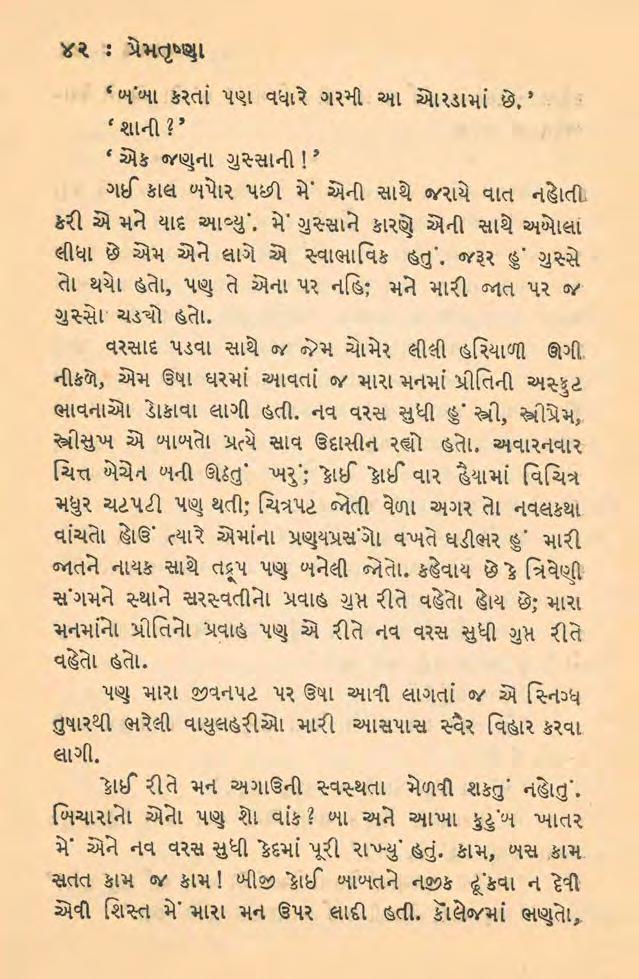 ૪૨ : પ્રેમતૃષ્ણા
‘બંબા કરતાં પણ વધારે ગરમી આ ઓરડામાં છે.’
‘શાની ?’
‘એક જણના ગુસ્સાની !’
ગઈ કાલ બપોર પછી મેં એની સાથે જરાયે વાત નહોતી
કરી એ મને યાદ આવ્યું. મેં ગુસ્સાને કારણે એની સાથે અબોલા
લીધા છે એમ એને લાગે એ સ્વાભાવિક હતું. જરૂર હું ગુસ્સે
તો થયો હતો, પણ તે એના પર નહિ; મને મારી જાત પર જ
ગુસ્સો ચડ્યો હતો.
વરસાદ પડવા સાથે જ જેમ ચોમેર લીલી હરિયાળી ઊગી
નીકળે, એમ ઉષા ઘરમાં આવતાં જ મારા મનમાં પ્રીતિની અસ્ફુટ
ભાવનાઓ ડોકાવા લાગી હતી. નવ વરસ સુધી હું સ્ત્રી, સ્ત્રીપ્રેમ,
સ્ત્રીસુખ એ બાબતો પ્રત્યે સાવ ઉદાસીન રહ્યો હતો. અવારનવાર
ચિત્ત બેચેન બની ઊઠતું ખરું; કોઈ કોઈ વાર હૈયામાં વિચિત્ર
મધુર ચટપટી પણ થતી; ચિત્રપટ જોતી વેળા અગર તો નવલકથા
વાંચતો હોઉં ત્યારે એમાંના પ્રણયપ્રસંગો વખતે ઘડીભર હું મારી
જાતને નાયક સાથે તદ્રૂપ પણ બનેલી જોતો. કહેવાય છે કે ત્રિવેણી
સંગમને સ્થાને સરસ્વતીનો પ્રવાહ ગુપ્ત રીતે વહેતો હોય છે; મારા
મનમાંનો પ્રીતિનો પ્રવાહ પણ એ રીતે નવ વરસ સુધી ગુપ્ત રીતે
વહેતો હતો.
પણ મારા જીવનપટ પર ઉષા આવી લાગતાં જ એ સ્નિગ્ધ
તુષારથી ભરેલી વાયુલહરીઓ મારી આસપાસ સ્વૈર વિહાર કરવા
લાગી.
કોઈ રીતે મન અગાઉની સ્વસ્થતા મેળવી શકતું નહોતું.
બિચારાનો એનો પણ શો વાંક ? બા અને આખા કુટુંબ ખાતર
મેં એને નવ વરસ સુધી કેદમાં પૂરી રાખ્યું હતું. કામ, બસ કામ
સતત કામ જ કામ ! બીજી કોઈ બાબતને નજીક ઢૂંકવા ન દેવી
એવી શિસ્ત મેં મારા મન ઉપર લાદી હતી. કૉલેજમાં ભણતો,